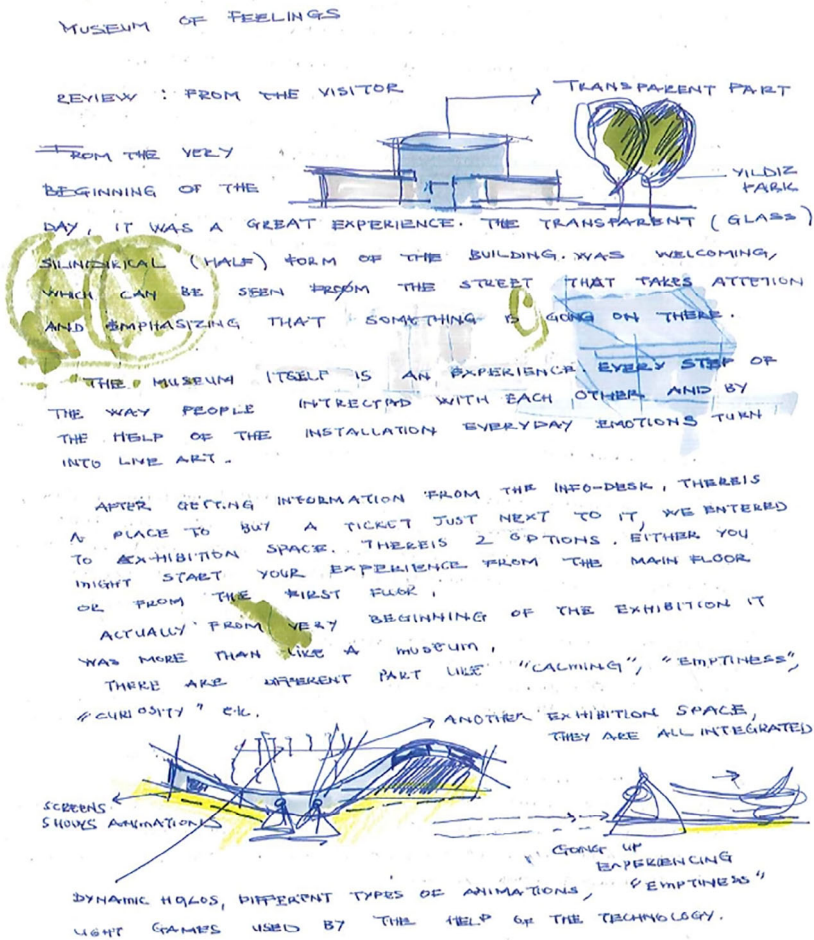 MUSEUM OF FEELINGS
REVIEW : FROM THE VISITOR
TRANSPARENT PART
YILDIZ
PARK
FROM THE VERY
BEGINNING OF THE
DAY, IT WAS A GREAT EXPERIENCE. THE TRANSPARENT (GLASS)
SILINDIRICAL (HALF) FORM OF THE BUILDING. WAS WELCOMING,
WHICH CAN BE SEEN FROM THE STREET THAT TAKES ATTETION
AND EMPHASIZING THAT SOMETHING IS GOING ON THERE.
"THE MUSEUM ITSELF IS AN EXPERIENCE. EVERY STEP OF
THE WAY PEOPLE INTRECTED WITH EACH OTHER AND BY
THE HELP OF THE INSTALLATION EVERYDAY EMOTIONS TURN
INTO LIVE ART.
AFTER GETTING INFORMATION FROM THE INFO-DESK, THEREIS
A PLACE TO BUY A TICKET JUST NEXT TO IT, WE ENTERED
TO EXHIBITION SPACE. THEREIS 2 OPTIONS. EITHER YOU
MIGHT START YOUR EXPERIENCE FROM THE MAIN FLOOR
OR FROM THE FIRST FLOOR.
ACTUALLY FROM VERY BEGINNING OF THE EXHIBITION IT
WAS MORE THAN LIKE A MUSEUM.
THERE ARE DIFFERENT PART LIKE "CALMING", "EMPTINESS",
"CURIOSITY" etc.
ANOTHER EXHIBITION SPACE,
THEY ARE ALL INTEGRATED
SCREENS
SHOWS ANIMATIONS
GOING UP
EXPERIENCING
"EMPTINESS"
DYNAMIC HOLOS, DIFFERENT TYPES OF ANIMATIONS,
LIGHT GAMES USED BY THE HELP OF THE TECHNOLOGY.